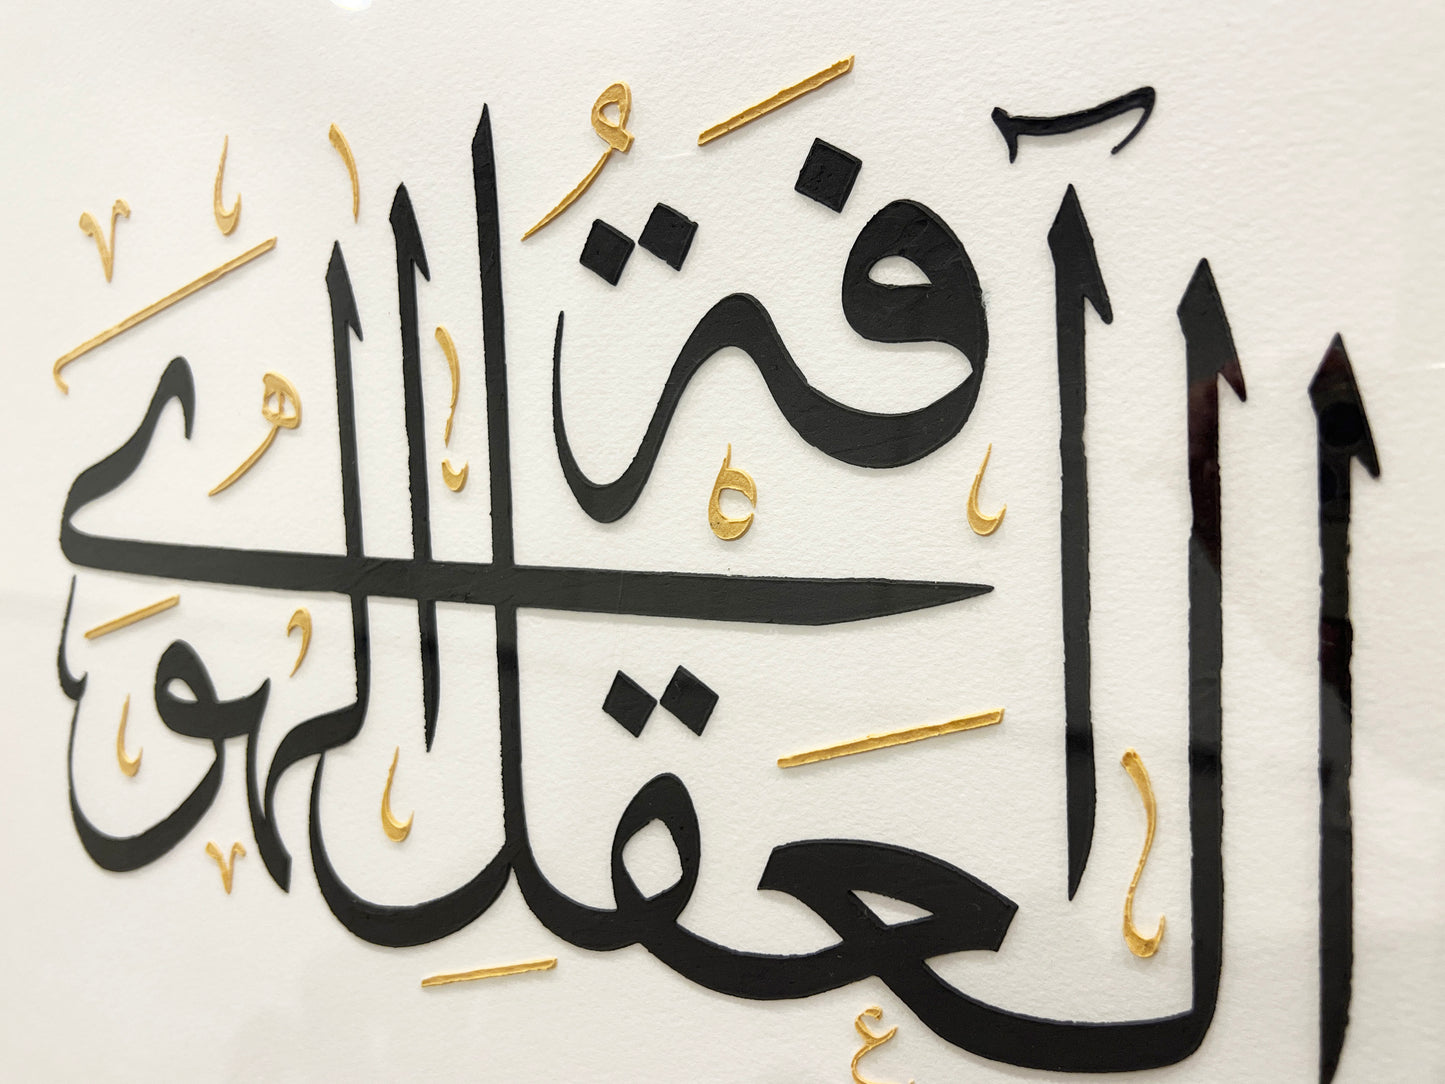 آفَةُ
العَقْلِ الهَوَى